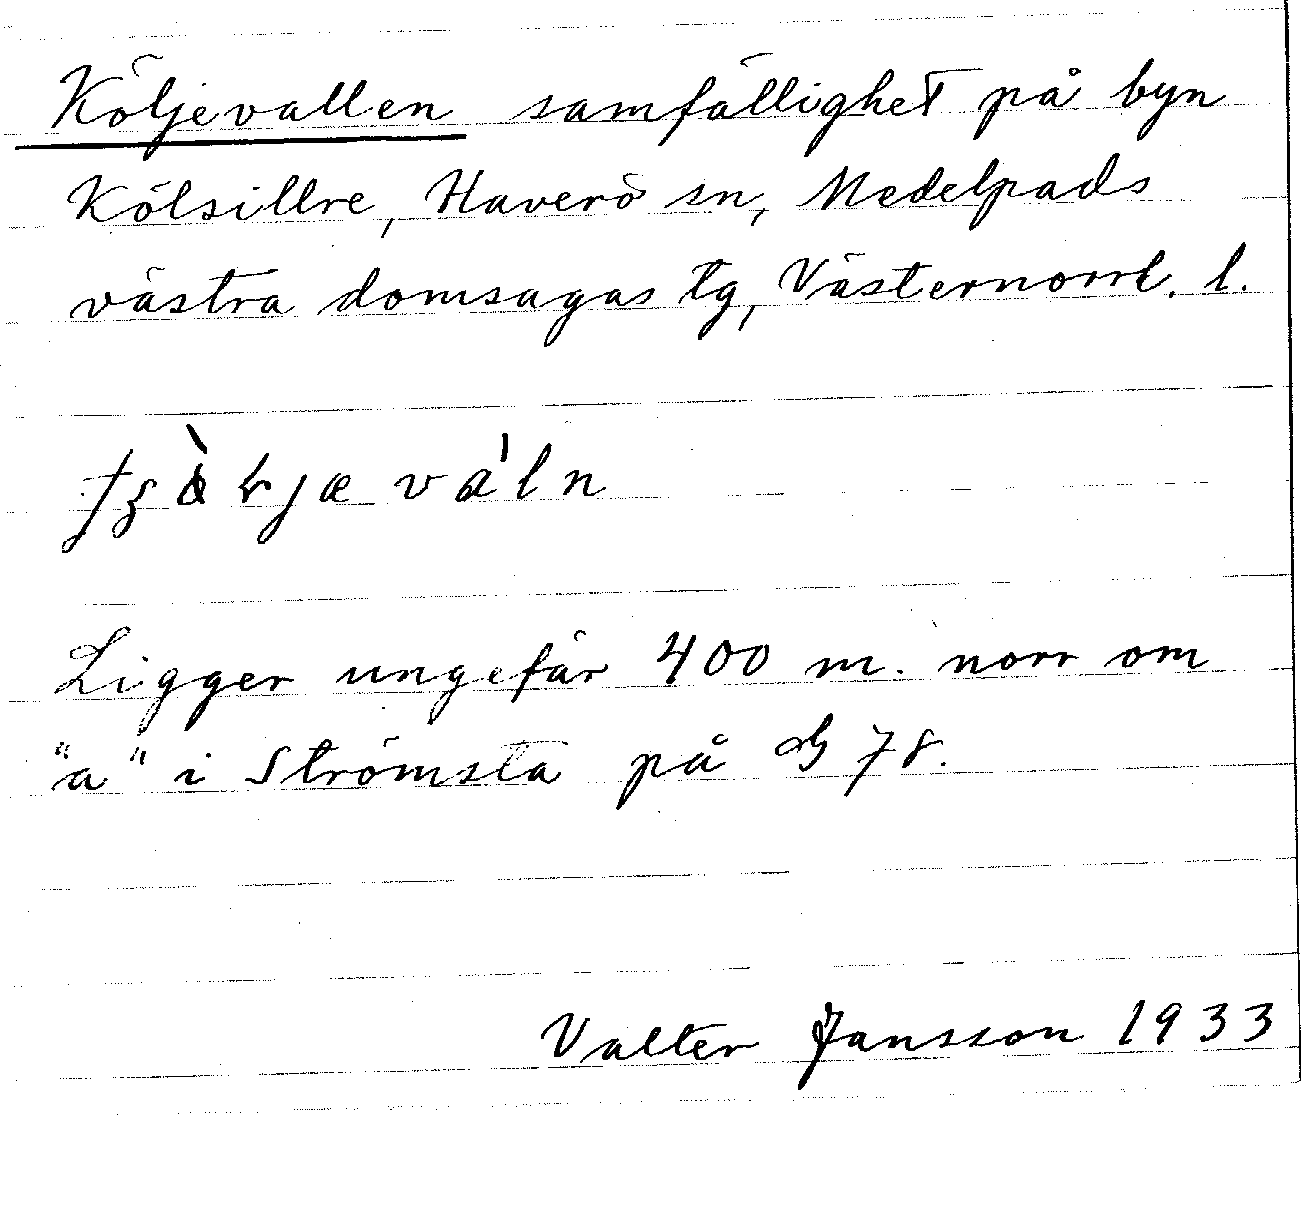 Köljevallen samfällighet på byn
Kölsillre, Haverö sn, Medelpads
västra domsagas tg, Västernorrl. l.
Ligger ungefär 400 m. norr om
"a" i Strömsta på G 78.
Valter Jansson 1933